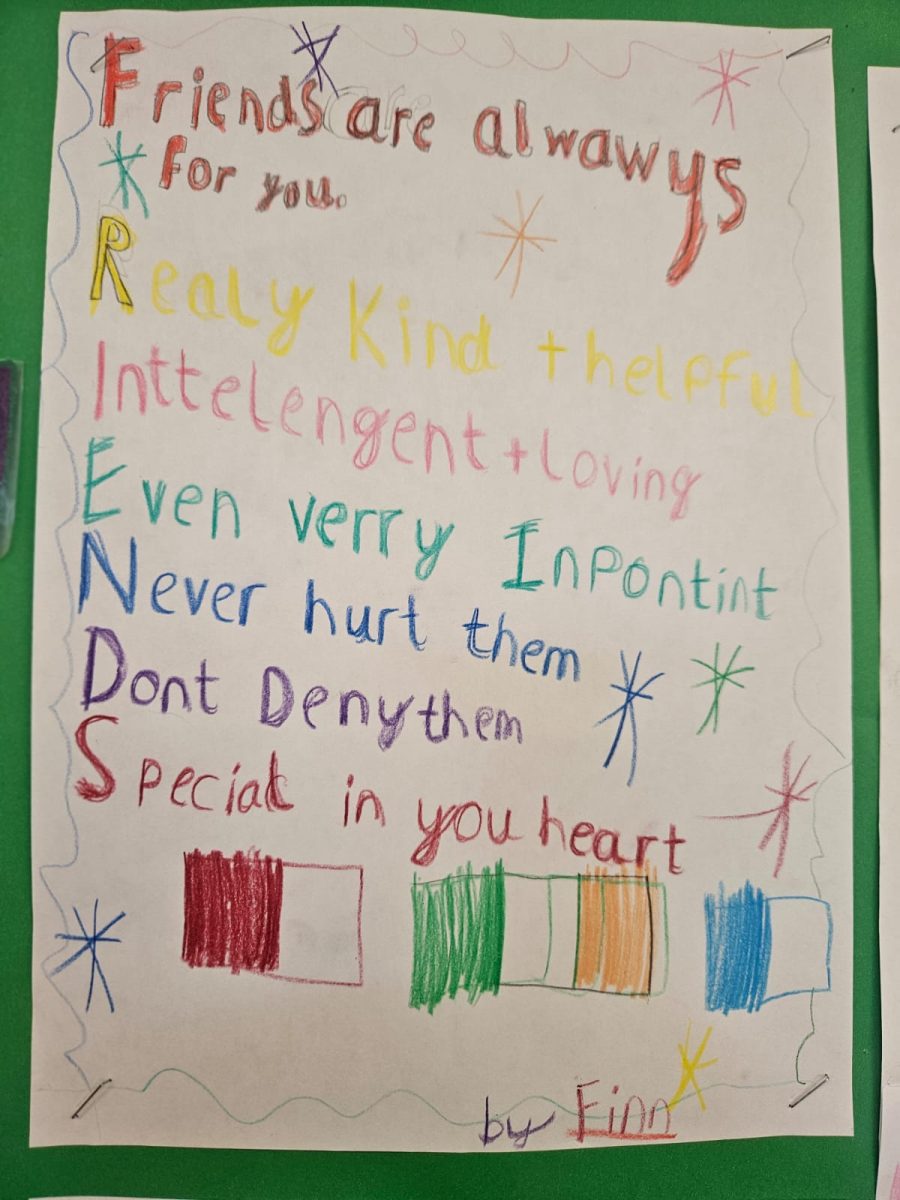 Friends are alwawys
for you.
Realy Kind + helpful
Inttelengent + loving
Even verry Inpontint
Never hurt them
Dont Deny them
Special in you heart
by Finn